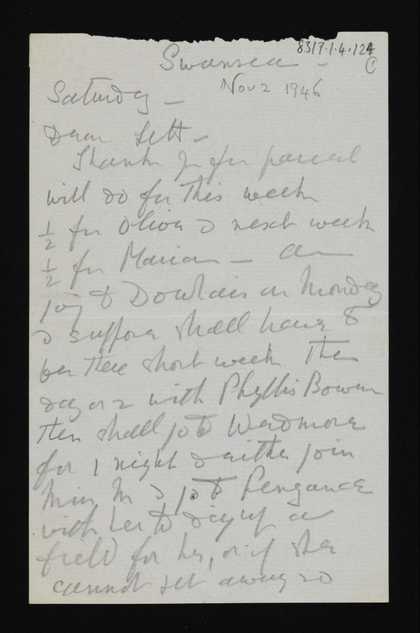 8317.1.4.124
C
Swansea –
Saturday – Nov 2 1946
Dear Lett –
Thank for parcel
will do for this week
½ for Olive & next week
½ for Marian – am
to Dowlais on Monday
& suppose shall have to
be there short week then
day or 2 with Phyllis Bowen
then shall go to Wedmore
for 1 night & either join
Miss M & go to Penzance
with her to dig up a
field for her, or if she
cannot get away so